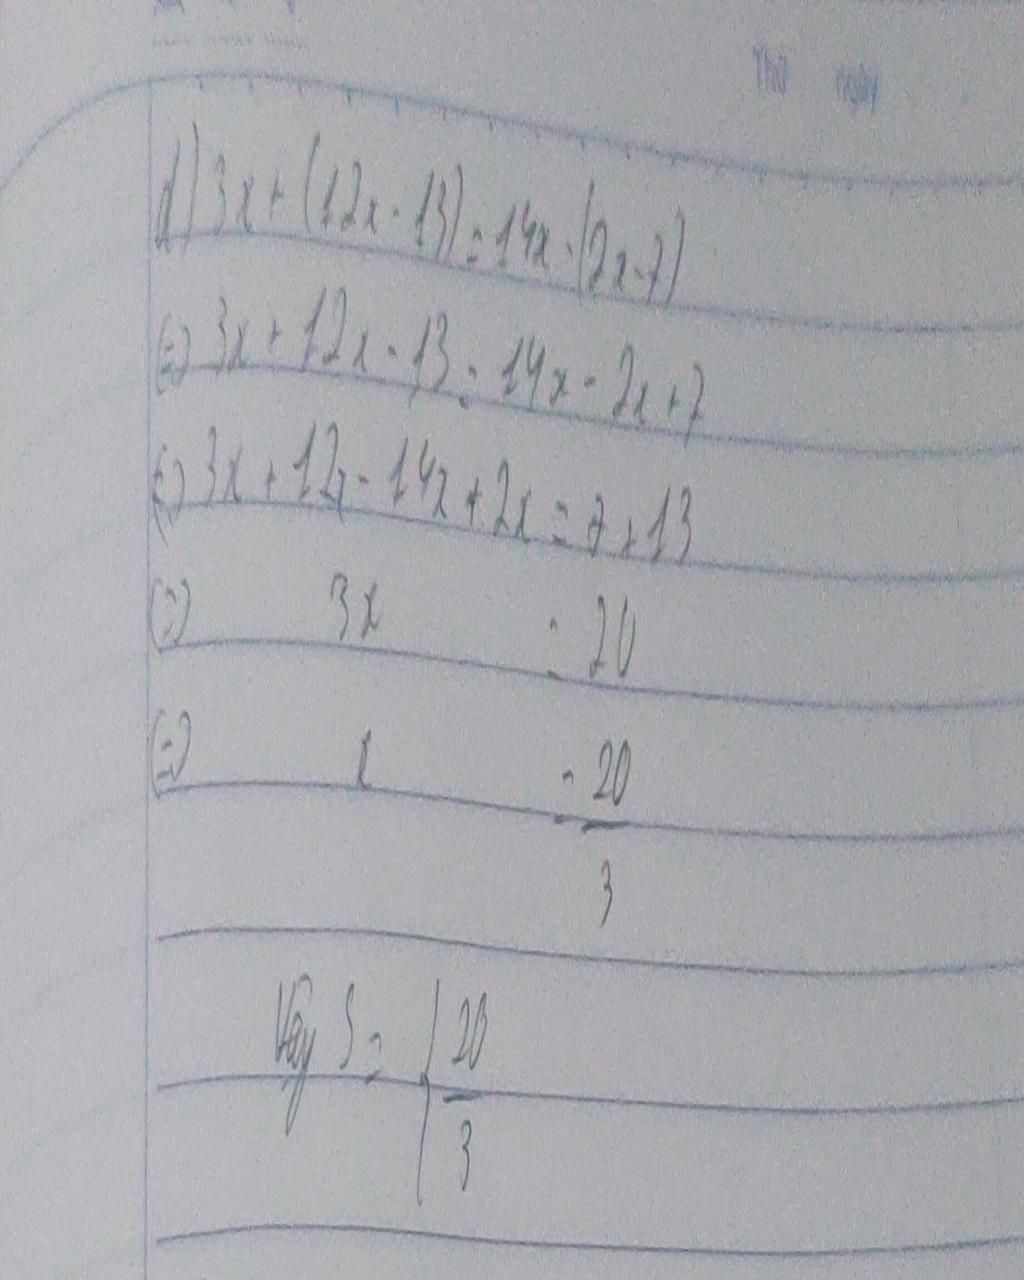 Thứ ngày
d) 3x + (12x - 13) = 14x - (2x - 7)
(=) 3x + 12x - 13 = 14x - 2x + 7
(=) 3x + 12x - 14x + 2x = 7 + 13
(=) 3x = 20
(=) x = 20/3
Vậy S = { 20/3